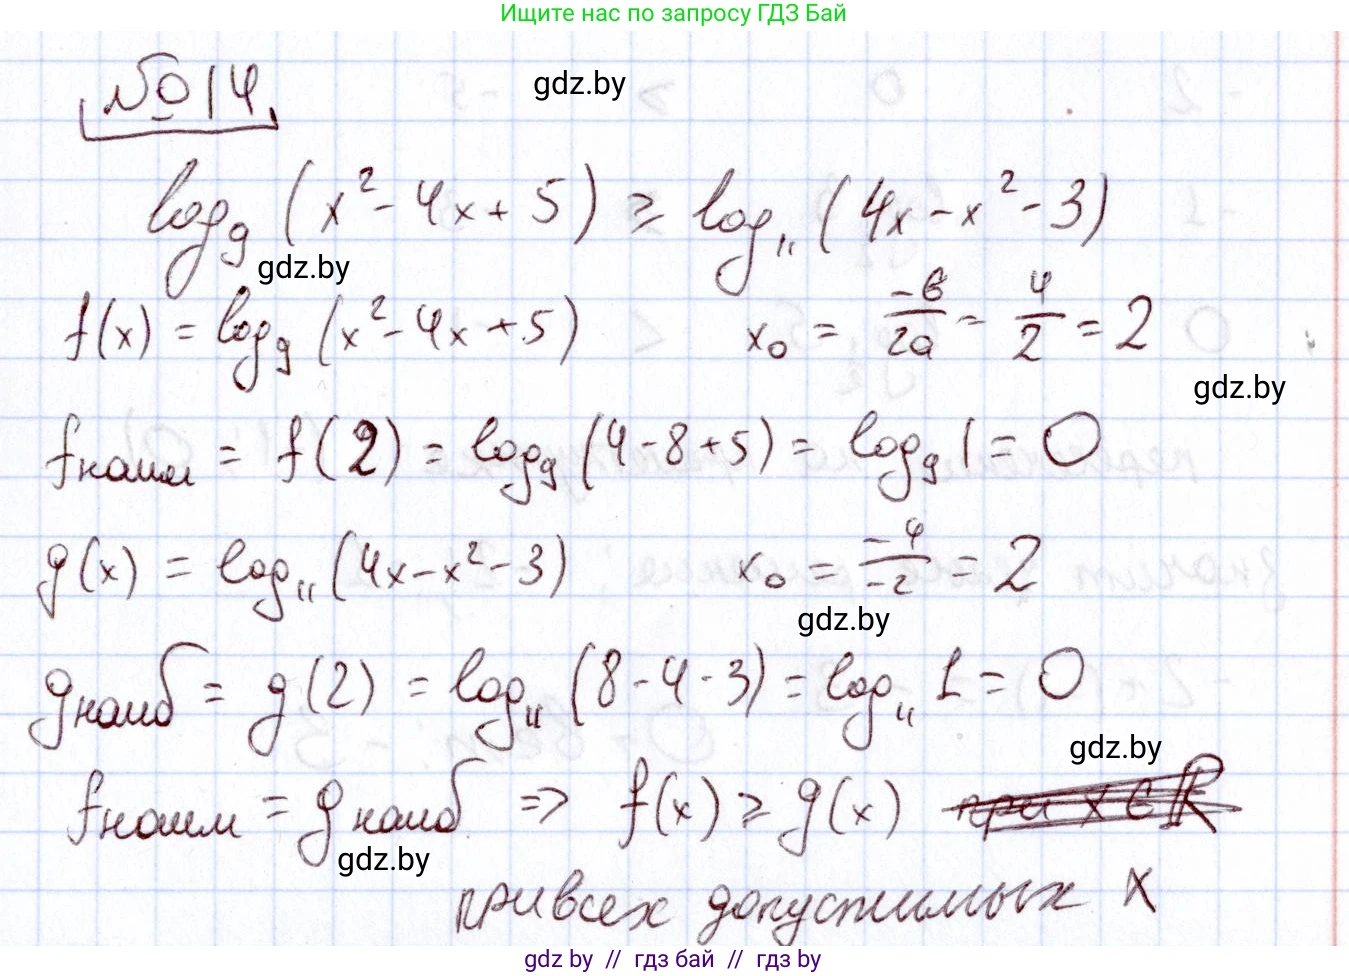 Ищите нас по запросу ГДЗ Бай
№ 14
gdz.by
log₉ (x² - 4x + 5) ⩾ log₁₁ (4x - x² - 3)
gdz.by
f(x) = log₉ (x² - 4x + 5) x₀ = -b/2a = 4/2 = 2
gdz.by
fнаим = f(2) = log₉ (4 - 8 + 5) = log₉ 1 = 0
g(x) = log₁₁ (4x - x² - 3) x₀ = -4/-2 = 2
gdz.by
gнаиб = g(2) = log₁₁ (8 - 4 - 3) = log₁₁ 1 = 0
gdz.by
fнаим = gнаиб => f(x) ⩾ g(x) при x ∈ ℝ
gdz.by
при всех допустимых x
gdz.by // гдз бай // гдз by